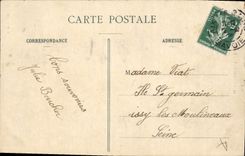 CARTE POSTALE
CORRESPONDANCE
ADRESSE
Bons souvenirs
Julia
Madame Viat
Ile St germain
issy les Moulineaux
Seine